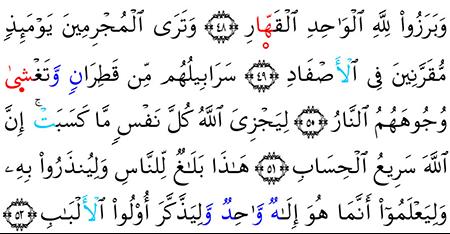 وَبَرَزُوا۟ لِلَّهِ ٱلْوَٰحِدِ ٱلْقَهَّارِ ﴿٤٨﴾ وَتَرَى ٱلْمُجْرِمِينَ يَوْمَئِذٍ
مُّقَرَّنِينَ فِى ٱلْأَصْفَادِ ﴿٤٩﴾ سَرَابِيلُهُم مِّن قَطِرَانٍ وَّتَغْشَىٰ
وُجُوهَهُمُ ٱلنَّارُ ﴿٥٠﴾ لِيَجْزِىَ ٱللَّهُ كُلَّ نَفْسٍ مَّا كَسَبَتْ ۚ إِنَّ
ٱللَّهَ سَرِيعُ ٱلْحِسَابِ ﴿٥١﴾ هَـٰذَا بَلَـٰغٌ لِّلنَّاسِ وَلِيُنذَرُوا۟ بِهِۦ
وَلِيَعْلَمُوٓا۟ أَنَّمَا هُوَ إِلَـٰهٌ وَّٰحِدٌ وَّلِيَذَّكَّرَ أُو۟لُوا۟ ٱلْأَلْبَـٰبِ ﴿٥٢﴾